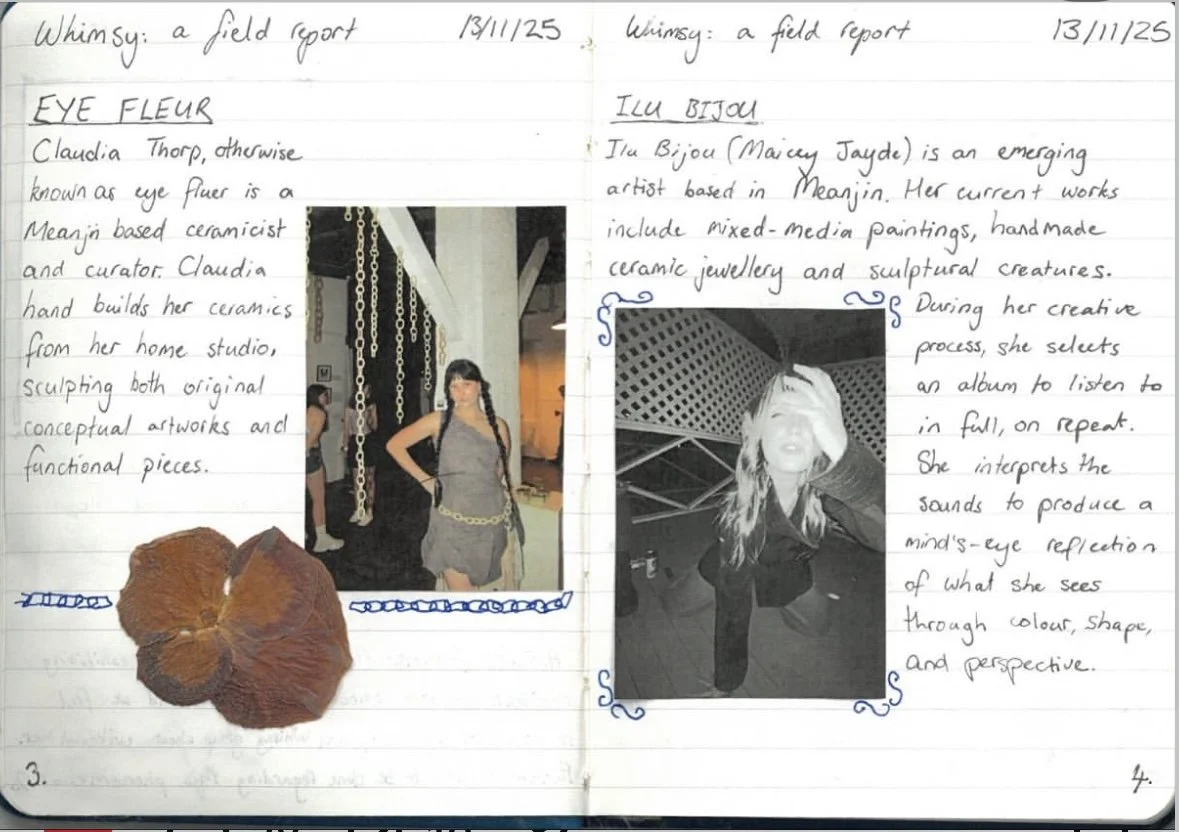 Whimsy: a field report 13/11/25
EYE FLEUR
Claudia Thorp, otherwise
known as eye fluer is a
Meanjn based ceramicist
and curator. Claudia
hand builds her ceramics
from her home studio,
sculpting both original
conceptual artworks and
functional pieces.
3.
Whimsy: a field report 13/11/25
ILU BIJOU
Ilu Bijou (Maicey Jayde) is an emerging
artist based in Meanjin. Her current works
include mixed-media paintings, handmade
ceramic jewellery and sculptural creatures.
During her creative
process, she selects
an album to listen to
in full, on repeat.
She interprets the
sounds to produce a
mind's-eye reflection
of what she sees
through colour, shape,
and perspective.
4.